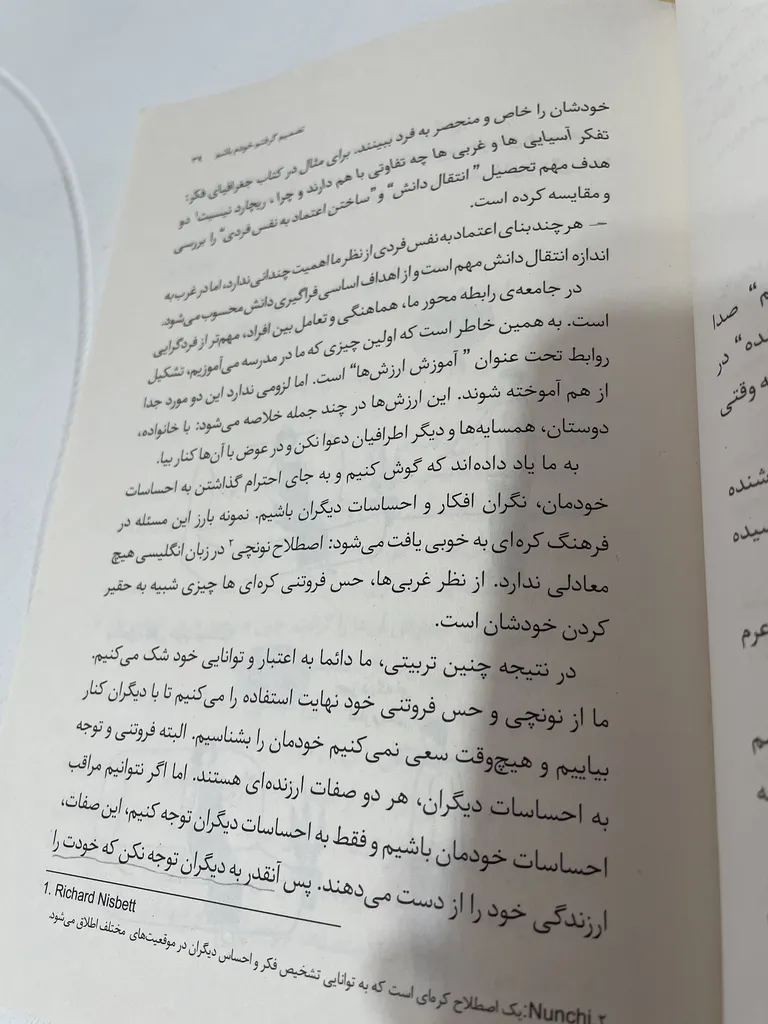 تصمیم گرفتم خودم باشم ۳۹
خودشان را خاص و منحصر به فرد ببینند. برای مثال در کتاب جغرافیای فکر:
تفکر آسیایی ها و غربی ها چه تفاوتی با هم دارند و چرا، ریچارد نیسبت۱ دو
هدف مهم تحصیل ” انتقال دانش“ و ”ساختن اعتماد به نفس فردی“ را بررسی
و مقایسه کرده است.
— هر چند بنای اعتماد به نفس فردی از نظر ما اهمیت چندانی ندارد، اما در غرب به
اندازه انتقال دانش مهم است و از اهداف اساسی فراگیری دانش محسوب می‌شود.
در جامعه‌ی رابطه محور ما، هماهنگی و تعامل بین افراد، مهم‌تر از فردگرایی
است. به همین خاطر است که اولین چیزی که ما در مدرسه می‌آموزیم، تشکیل
روابط تحت عنوان ” آموزش ارزش‌ها“ است. اما لزومی ندارد این دو مورد جدا
از هم آموخته شوند. این ارزش‌ها در چند جمله خلاصه می‌شود: با خانواده،
دوستان، همسایه‌ها و دیگر اطرافیان دعوا نکن و در عوض با آن‌ها کنار بیا.
به ما یاد داده‌اند که گوش کنیم و به جای احترام گذاشتن به احساسات
خودمان، نگران افکار و احساسات دیگران باشیم. نمونه بارز این مسئله در
فرهنگ کره‌ای به خوبی یافت می‌شود: اصطلاح نونچی۲ در زبان انگلیسی هیچ
معادلی ندارد. از نظر غربی‌ها، حس فروتنی کره‌ای ها چیزی شبیه به حقیر
کردن خودشان است.
در نتیجه چنین تربیتی، ما دائما به اعتبار و توانایی خود شک می‌کنیم.
ما از نونچی و حس فروتنی خود نهایت استفاده را می‌کنیم تا با دیگران کنار
بیاییم و هیچ‌وقت سعی نمی‌کنیم خودمان را بشناسیم. البته فروتنی و توجه
به احساسات دیگران، هر دو صفات ارزنده‌ای هستند. اما اگر نتوانیم مراقب
احساسات خودمان باشیم و فقط به احساسات دیگران توجه کنیم، این صفات،
ارزندگی خود را از دست می‌دهند. پس آنقدر به دیگران توجه نکن که خودت را
1. Richard Nisbett
۲. Nunchi:یک اصطلاح کره‌ای است که به توانایی تشخیص فکر و احساس دیگران در موقعیت‌های مختلف اطلاق می‌شود.
م“ صدا
ده“ در
ه وقتی
شنده
سیده